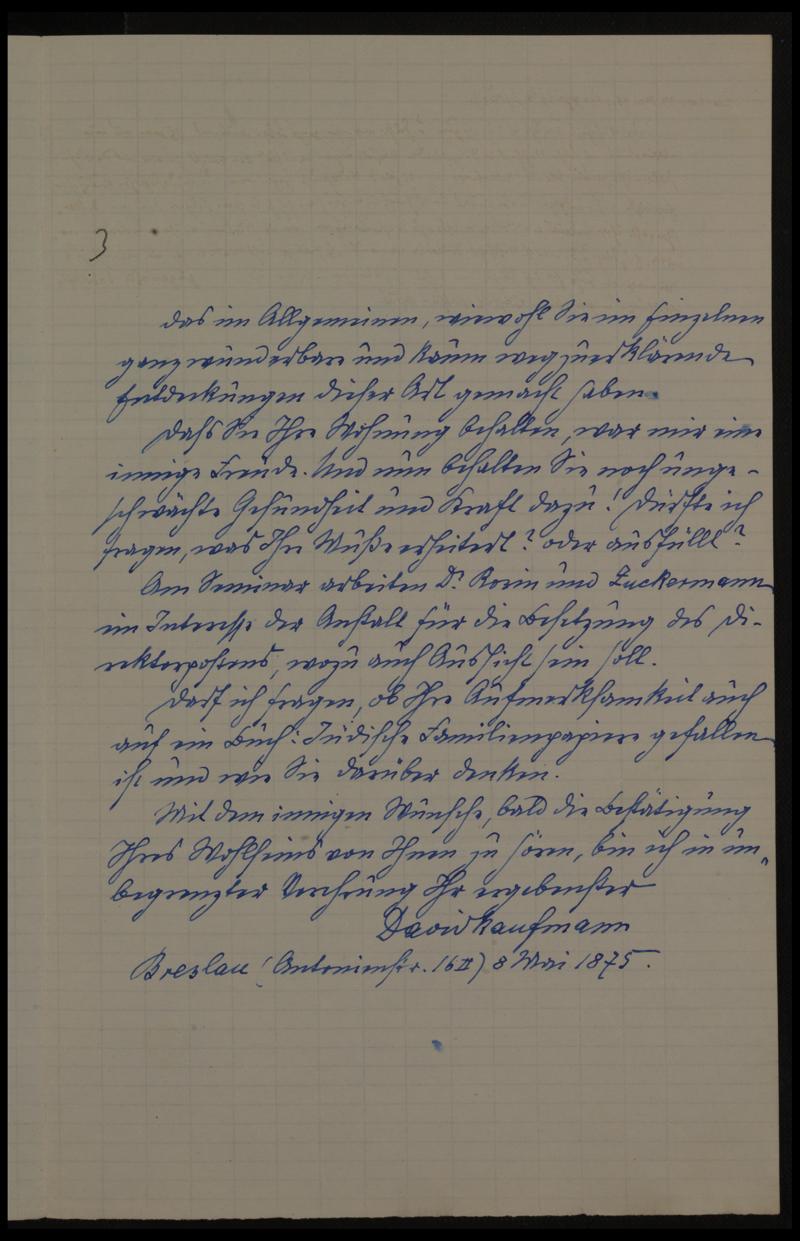 3
das im Allgemeinen, wiewohl Sie im Einzelnen
ganz wunderbare und kaum wegzuerklärende
Entdeckungen dieser Art gemacht haben.
Dass Sie Ihre Wohnung behalten, war mir eine
innige Freude. Und nun behalten Sie noch unge-
schwächte Gesundheit und Kraft dazu! Dürfte ich
fragen, was Ihre Muße erheitert? oder ausfüllt?
Am Seminar arbeiten Dr. Rosin und Zuckermann
im Interesse der Anstalt für die Besetzung des Di-
rektorpostens, wozu auch Aussicht sein soll.
Darf ich fragen, ob Ihre Aufmerksamkeit auch
auf ein Buch: Jüdische Familienpapiere gefallen
ist und wie Sie darüber denken.
Mit dem innigen Wunsche, bald die Bestätigung
Ihres Wohlseins von Ihnen zu hören, bin ich in un-
begrenzter Verehrung Ihr ergebenster
David Kaufmann
Breslau (Antonienstr. 16 II) 8 Mai 1875.